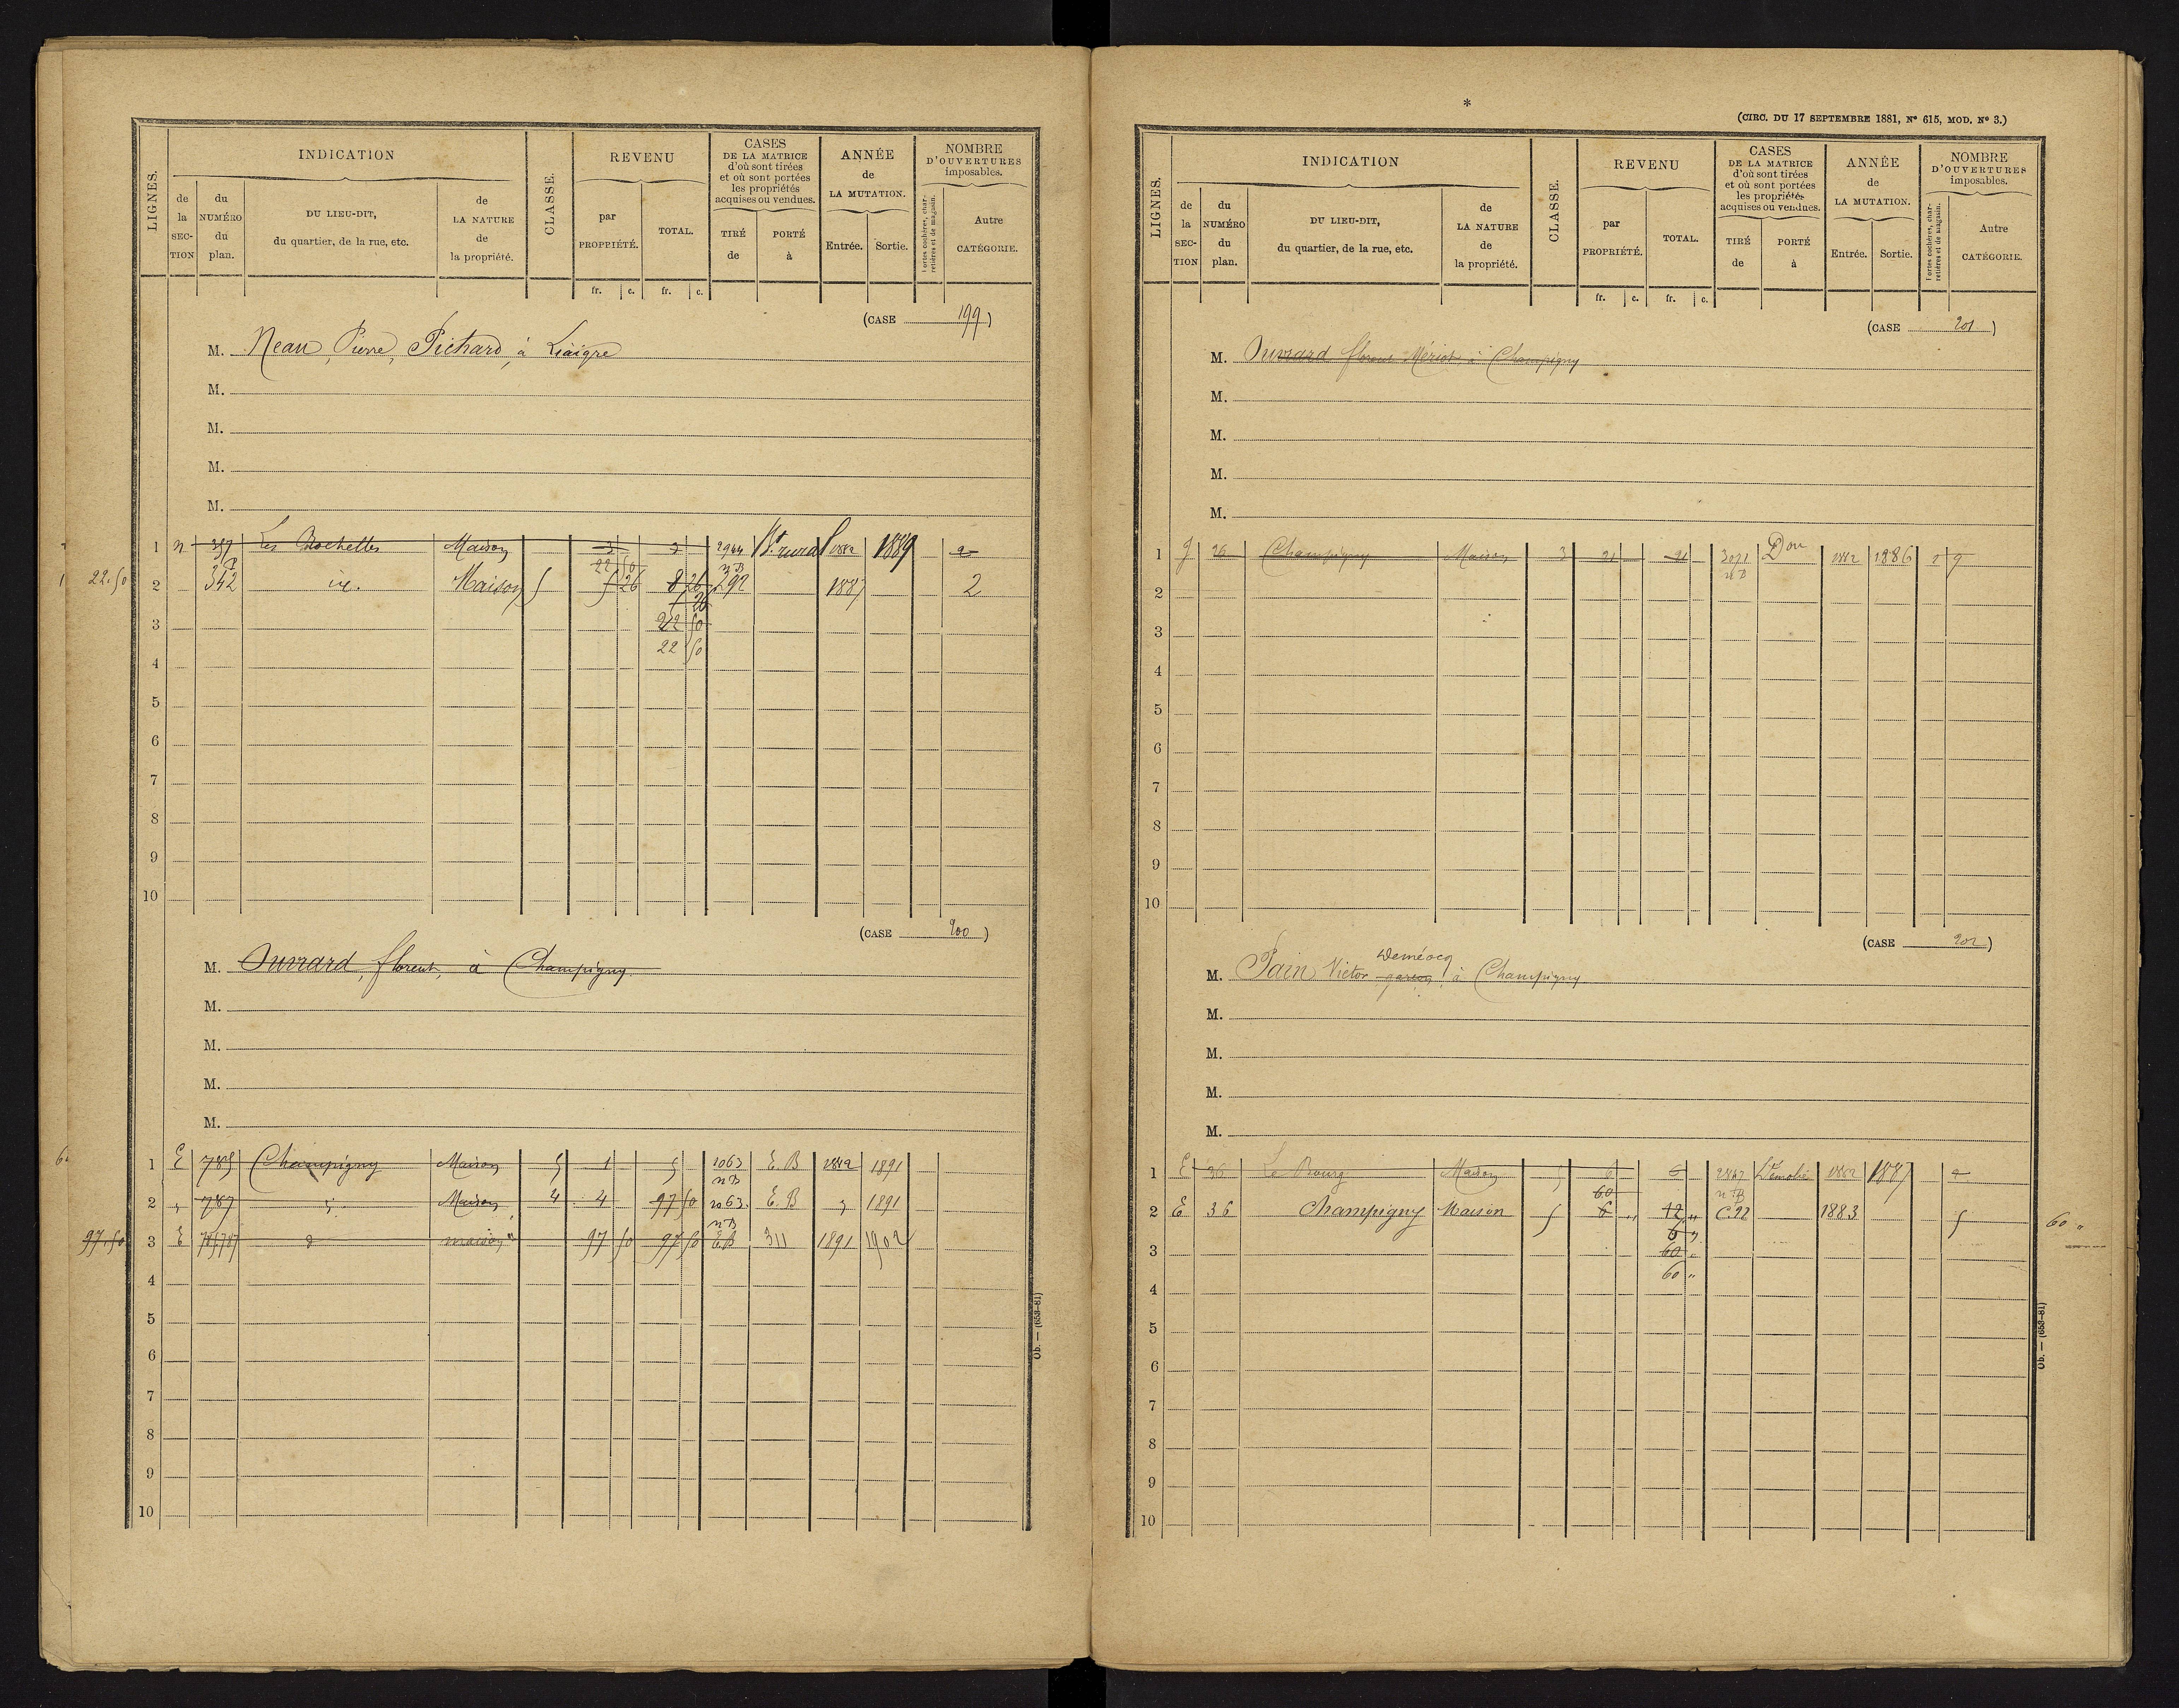 LIGNES.
INDICATION
de la SECTION
du NUMÉRO du plan.
DU LIEU-DIT, du quartier, de la rue, etc.
de LA NATURE de la propriété.
CLASSE.
REVENU
par PROPRIÉTÉ.
TOTAL.
fr. c. fr. c.
CASES DE LA MATRICE d'où sont tirées et où sont portées les propriétés acquises ou vendues.
TIRÉ de
PORTÉ à
ANNÉE de LA MUTATION.
Entrée. Sortie.
NOMBRE D'OUVERTURES imposables.
Portes cochères, charretières et de magasin.
Autre CATÉGORIE.
(CASE 199)
M. Neau, Pierre, Pichard, à Liaigre
M.
M.
M.
M.
1 n 357 Les Rochelles Maison 3 3 2944 Bt. rural 1882 1889 2
nB
22.50 2 342 id. Maison 5 22 50 5 26 8 26 292 1887 2
5 26
3 22 50
22 50
4
5
6
7
8
9
10
(CASE 200)
M. Ouvrard, florent, à Champigny.
M.
M.
M.
M.
1 E 785 Champigny Maison 5 1 5 1063 E.B 1882 1891
nB
2 " 787 Maison 4 4 97 50 1063 E.B 1891
nB
97.50 3 E 785 787 d maison 97 50 97 50 E.B 311 1891 1902
4
5
6
7
8
9
10
Ob. — (653-81)
*
(CIRC. DU 17 SEPTEMBRE 1881, Nº 615, MOD. Nº 3.)
LIGNES.
INDICATION
de la SECTION
du NUMÉRO du plan.
DU LIEU-DIT, du quartier, de la rue, etc.
de LA NATURE de la propriété.
CLASSE.
REVENU
par PROPRIÉTÉ.
TOTAL.
fr. c. fr. c.
CASES DE LA MATRICE d'où sont tirées et où sont portées les propriétés acquises ou vendues.
TIRÉ de
PORTÉ à
ANNÉE de LA MUTATION.
Entrée. Sortie.
NOMBRE D'OUVERTURES imposables.
Portes cochères, charretières et de magasin.
Autre CATÉGORIE.
(CASE 201)
M. Ouvrard florent Mériot, à Champigny
M.
M.
M.
M.
1 36 Champigny Maison 3 21 21 3071 Don 1882 1886 1 9
nB
2
3
4
5
6
7
8
9
10
(CASE 202)
Deméocq
M. Pain Victor garçon, à Champigny
M.
M.
M.
M.
1 E 36 Le Bourg Maison 5 6 6 2847 Démolie 1882 1887 2
60 nB
2 E 36 Champigny Maison 5 6 " 12 " C.92 1883 5 60 "
6 "
3 60 "
60 "
4
5
6
7
8
9
10
Ob. — (653-81)